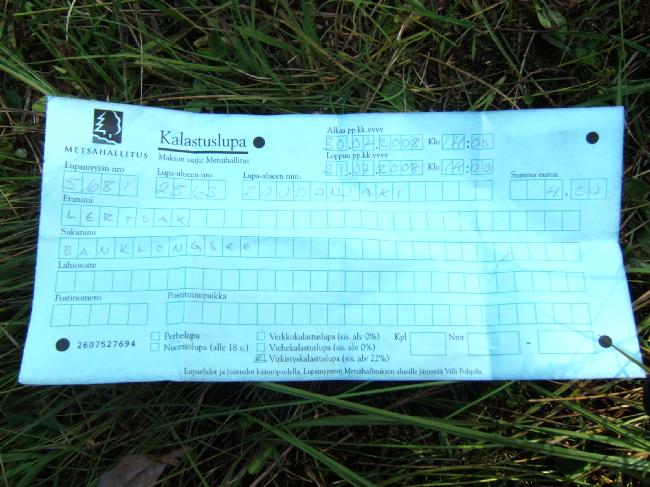 METSÄHALLITUS
Kalastuslupa
Maksun saaja: Metsähallitus
Alkaa pp.kk.vvvv
30.07.2008 Klo 14:00
Loppuu pp.kk.vvvv
31.07.2008 Klo 14:00
Lupamyyjän nro Lupa-alueen nro Lupa-alueen nimi Summa euroa
5681 2563 4.20
Etunimi
LERTSAK
Sukunimi
BANKLONGSEE
Lähiosoite
Postinumero Postitoimipaikka
2607527694
Perhelupa
Nuorisolupa (alle 18 v.)
Verkkokalastuslupa (sis. alv 0%) Kpl Nrot -
Viehekalastuslupa (sis. alv 0%)
Virkistyskalastuslupa (sis. alv 22%)
Lupaehdot ja lisätiedot kääntöpuolella. Lupamyynnin Metsähallituksen alueille järjestää Villi Pohjola.